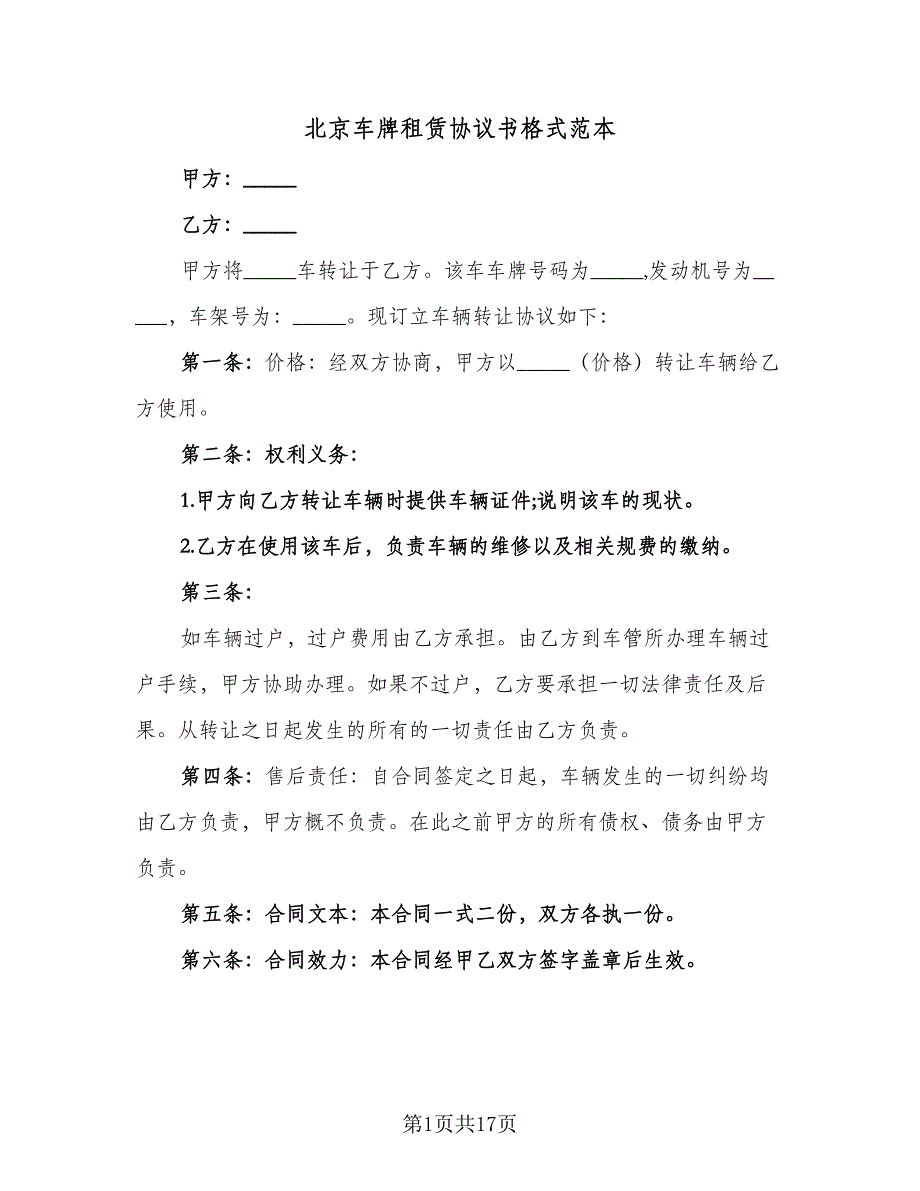 北京车牌租赁协议书格式范本
甲方：_____
乙方：_____
甲方将_____车转让于乙方。该车车牌号码为_____,发动机号为__
___，车架号为：_____。现订立车辆转让协议如下：
第一条：价格：经双方协商，甲方以_____（价格）转让车辆给乙
方使用。
第二条：权利义务：
1.甲方向乙方转让车辆时提供车辆证件;说明该车的现状。
2.乙方在使用该车后，负责车辆的维修以及相关规费的缴纳。
第三条：
如车辆过户，过户费用由乙方承担。由乙方到车管所办理车辆过
户手续，甲方协助办理。如果不过户，乙方要承担一切法律责任及后
果。从转让之日起发生的所有的一切责任由乙方负责。
第四条：售后责任：自合同签定之日起，车辆发生的一切纠纷均
由乙方负责，甲方概不负责。在此之前甲方的所有债权、债务由甲方
负责。
第五条：合同文本：本合同一式二份，双方各执一份。
第六条：合同效力：本合同经甲乙双方签字盖章后生效。
第1页共17页